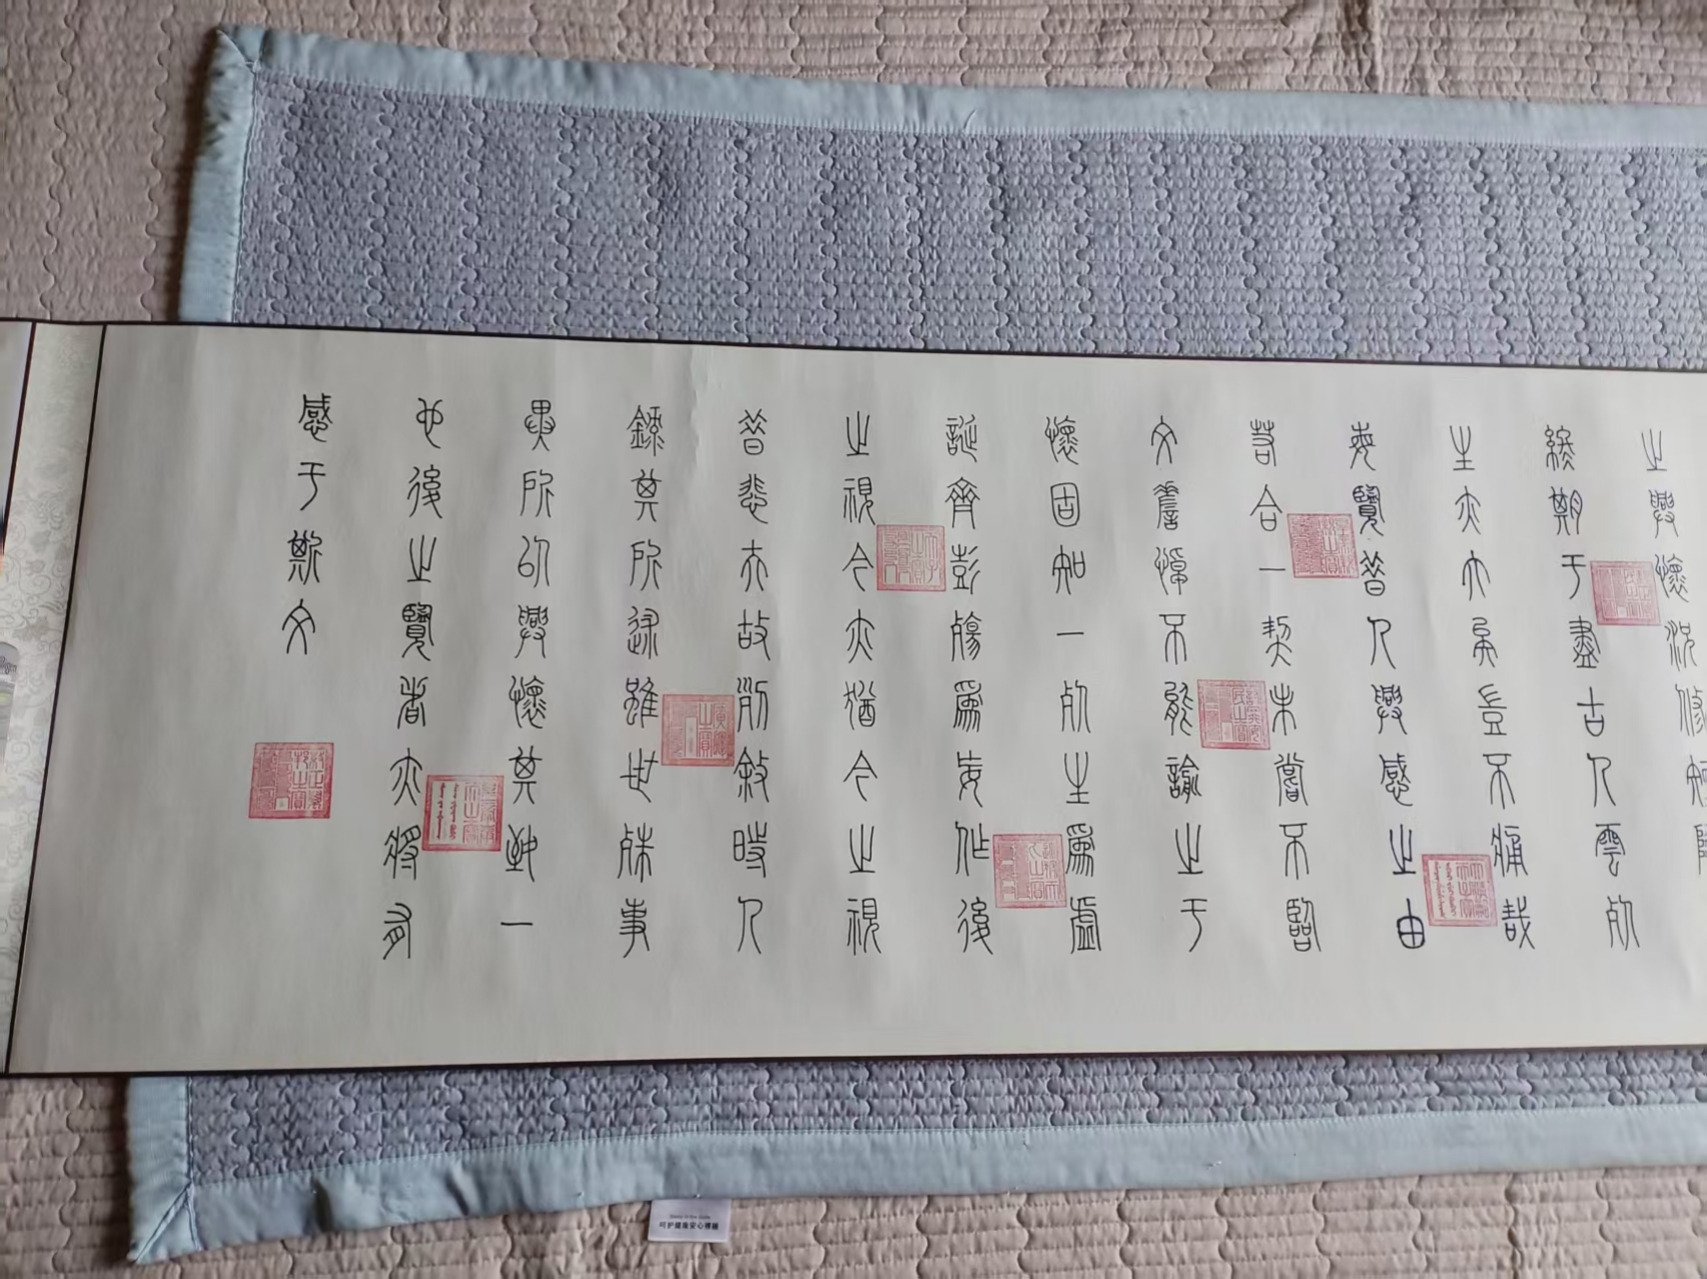 之興懷況脩短
終期于盡古人雲死
生亦大矣豈不痛哉
每覽昔人興感之由
若合一契未嘗不臨
文嗟悼不能諭之于
懷固知一死生爲虛
誕齊彭殤爲妄作後
之視今亦猶今之視
昔悲夫故列敘時人
錄其所述雖世殊事
異所以興懷其致一
也後之覽者亦將有
感于斯文